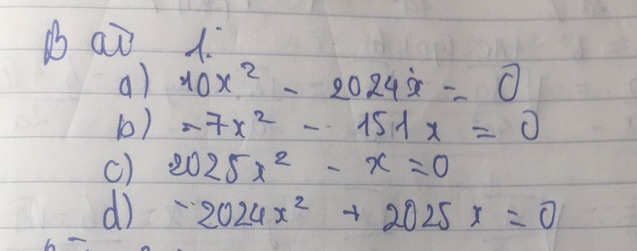 Bài 1:
a) 10x² - 2024x = 0
b) -7x² - 151x = 0
c) 2025x² - x = 0
d) -2024x² + 2025x = 0